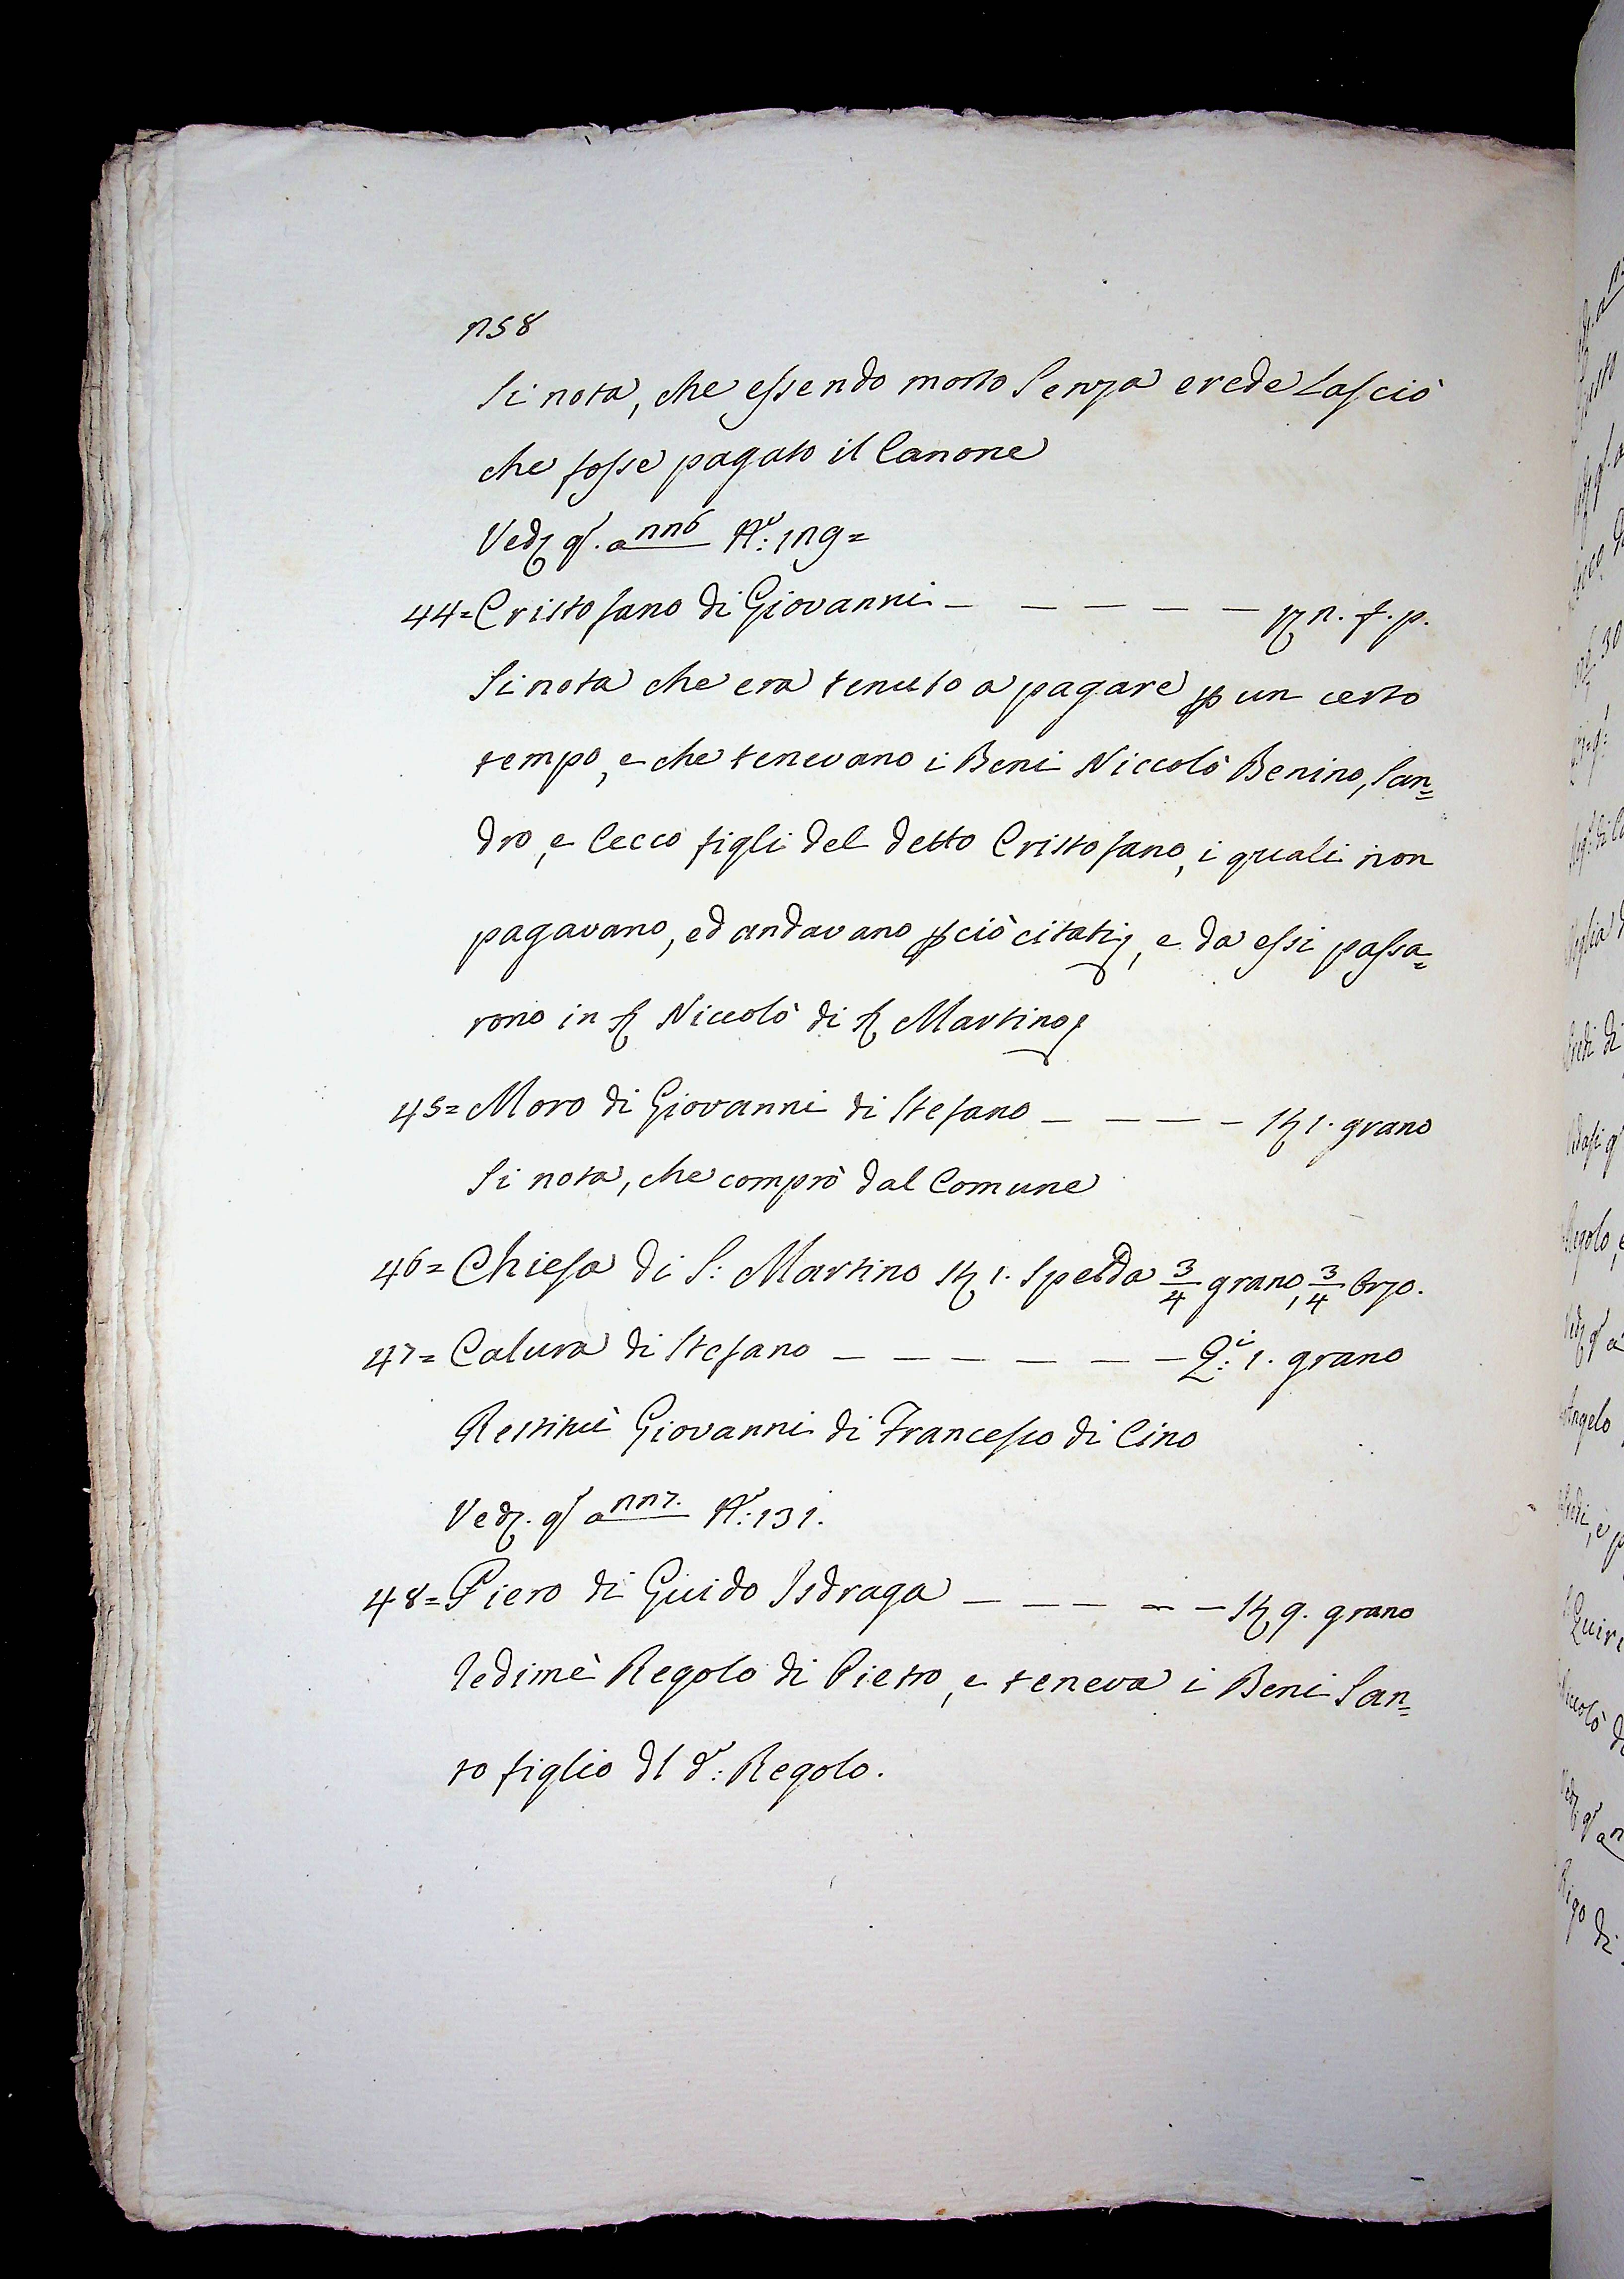 258
Si nota, che essendo morto senza erede lasciò
che fosse pagato il Canone
Ved. q.º a 226 N.º: 129=
44= Cristofano di Giovanni — — — — — 2. f. p.
Si nota che era tenuto a pagare p un certo
tempo, e che tenevano i Beni Niccolò Benino, San=
dro, e Cecco figli del detto Cristofano, i quali non
pagavano, ed andavano pciò citati, e da essi passa=
rono in S. Niccolò di S. Martino
45= Moro di Giovanni di Stefano — — — — St. 1. grano
Si nota, che comprò dal Comune
46= Chiesa di S: Martino St. 1. Spelda 3/4 grano, 3/4 Orzo.
47= Calura di Stefano — — — — — — Q.i: 1. grano
Restituì Giovanni di Francesco di Cino
Ved. q.º a 227. N.º: 131.
48= Piero di Guido Isdraga — — — — — St. 9. grano
Redimè Regolo di Pietro, e teneva i Beni San=
to figlio dl d.º: Regolo.